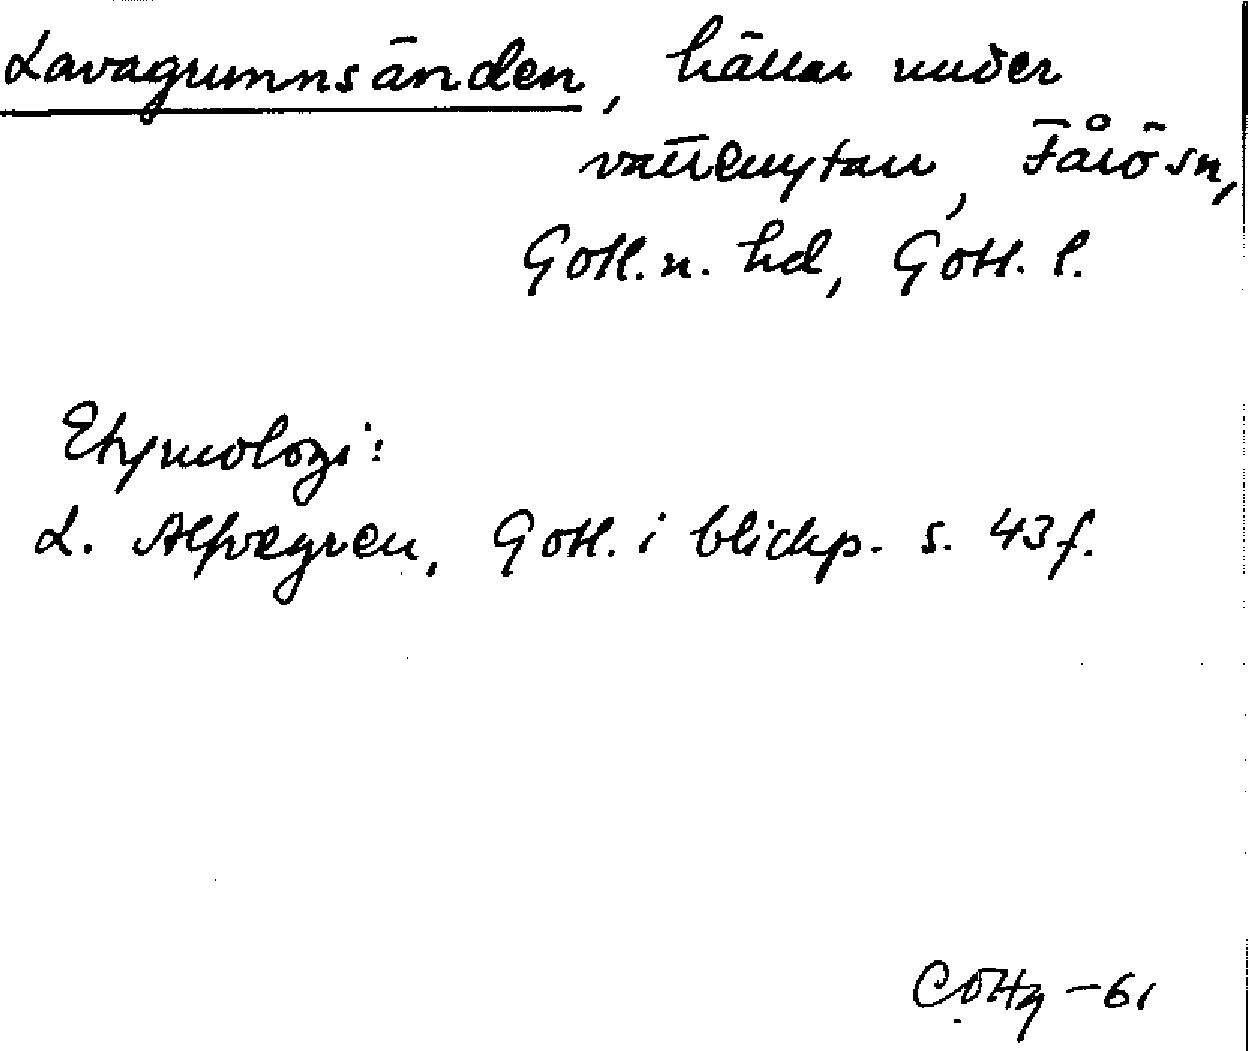 Lavagrunnsänden, hällar under
vattenytan, Fårö sn,
Gotl. n. hd, Gotl. l.
Etymologi:
L. Alfvegren, Gotl. i blickp. s. 43f.
-61